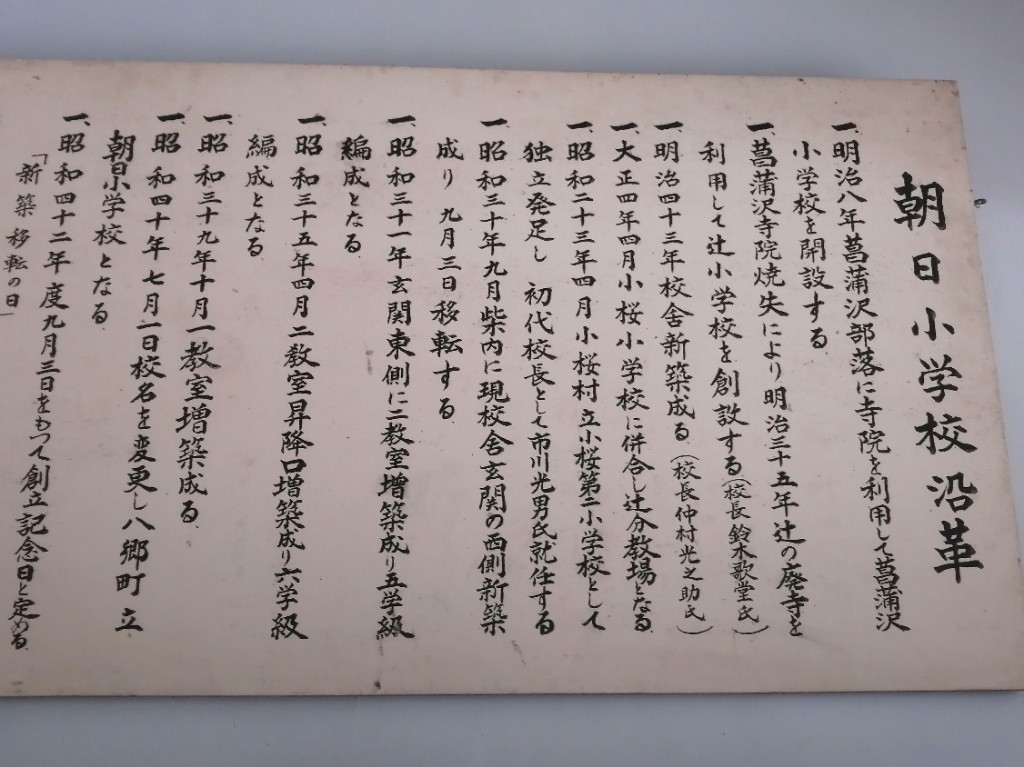 朝日小学校沿革
一、明治八年菖蒲沢部落に寺院を利用して菖蒲沢
小学校を開設する
一、菖蒲沢寺院焼失により明治三十五年辻の廃寺を
利用して辻小学校を創設する（校長鈴木歌堂氏）
一、明治四十三年校舎新築成る（校長仲村光之助氏）
一、大正四年四月小桜小学校に併合し辻分教場となる
一、昭和二十三年四月小桜村立小桜第二小学校として
独立発足し 初代校長として市川光男氏就任する
一、昭和三十年九月柴内に現校舎玄関の西側新築
成り 九月三日移転する
一、昭和三十一年玄関東側に二教室増築成り五学級
編成となる
一、昭和三十五年四月二教室昇降口増築成り六学級
編成となる
一、昭和三十九年十月一教室増築成る
一、昭和四十年七月一日校名を変更し八郷町立
朝日小学校となる
一、昭和四十二年度九月三日をもって創立記念日と定める
「新築移転の日」